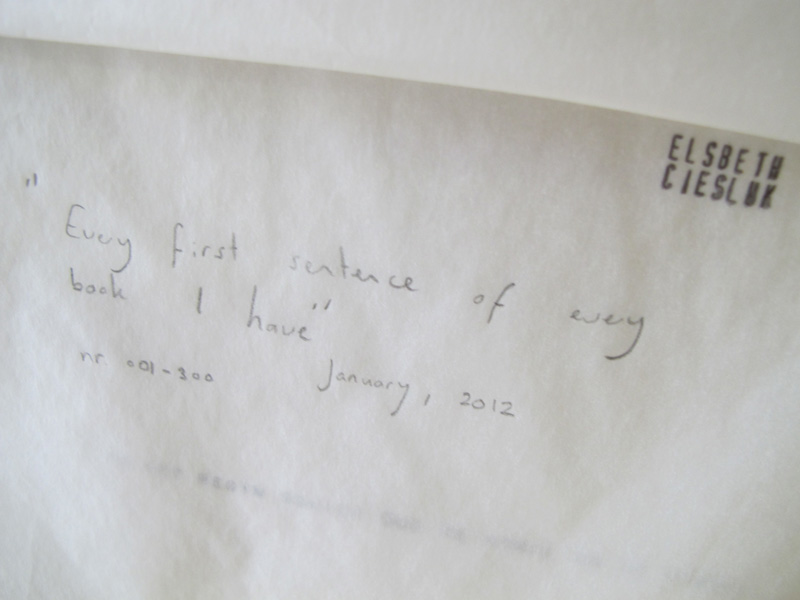 ELSBETH
CIESLUK
" Every first sentence of every
book I have"
nr 001-300 January, 2012